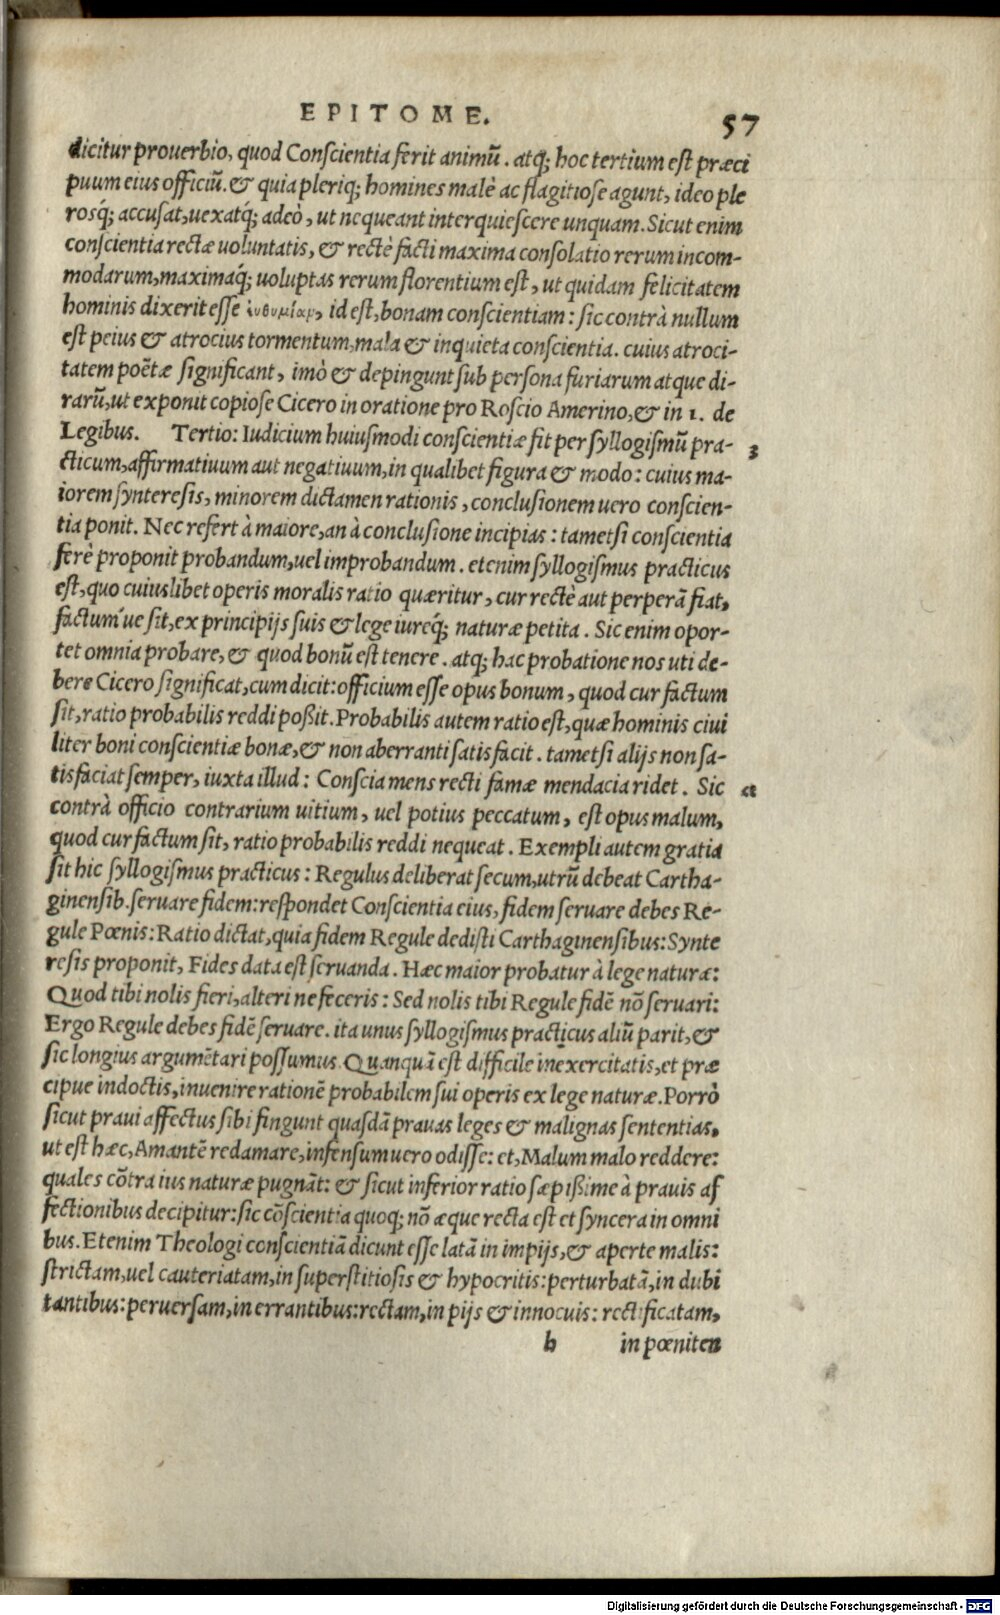 EPITOME. 57
dicitur prouerbio, quod Conscientia ferit animũ. atq; hoc tertium est præci
puum eius officiũ. & quia pleriq; homines malè ac flagitiose agunt, ideo ple
rosq́; accusat, uexatq́; adeò, ut nequeant interquiescere unquam. Sicut enim
conscientia rectæ uoluntatis, & rectè facti maxima consolatio rerum incom-
modarum, maximaq́; uoluptas rerum florentium est, ut quidam felicitatem
hominis dixerit esse id est, bonam conscientiam: sic contrà nullum
est peius & atrocius tormentum, mala & inquieta conscientia. cuius atroci-
tatem poëtæ significant, imò & depingunt sub persona furiarum atque di-
rarũ, ut exponit copiose Cicero in oratione pro Roscio Amerino, & in 1. de
Legibus. Tertio: Iudicium huiusmodi conscientiæ fit per syllogismũ pra- 3
cticum, affirmatiuum aut negatiuum, in qualibet figura & modo: cuius ma-
iorem synteresis, minorem dictamen rationis, conclusionem uero conscien-
tia ponit. Nec refert à maiore, an à conclusione incipias: tametsi conscientia
ferè proponit probandum, uel improbandum. etenim syllogismus practicus
est, quo cuiuslibet operis moralis ratio quæritur, cur rectè aut perperã fiat,
factum'ue sit, ex principijs suis & lege iureq́; naturæ petita. Sic enim opor-
tet omnia probare, & quod bonũ est tenere. atq; hac probatione nos uti de-
bere Cicero significat, cum dicit: officium esse opus bonum, quod cur factum
sit, ratio probabilis reddi poßit. Probabilis autem ratio est, quæ hominis ciui
liter boni conscientiæ bonæ, & non aberranti satisfacit. tametsi alijs non sa-
tisfaciat semper, iuxta illud: Conscia mens recti famæ mendacia ridet. Sic a
contrà officio contrarium uitium, uel potius peccatum, est opus malum,
quod cur factum sit, ratio probabilis reddi nequeat. Exempli autem gratia
sit hic syllogismus practicus: Regulus deliberat secum, utrũ debeat Cartha-
ginensib. seruare fidem: respondet Conscientia eius, fidem seruare debes Re-
gule Pœnis: Ratio dictat, quia fidem Regule dedisti Carthaginensibus: Synte
resis proponit, Fides data est seruanda. Hæc maior probatur à lege naturæ:
Quod tibi nolis fieri, alteri ne feceris: Sed nolis tibi Regule fidẽ nõ seruari:
Ergo Regule debes fidẽ seruare. ita unus syllogismus practicus aliũ parit, &
sic longius argumẽtari possumus. Quanquã est difficile inexercitatis, et præ
cipue indoctis, inuenire rationẽ probabilem sui operis ex lege naturæ. Porrò
sicut praui affectus sibi fingunt quasdã prauas leges & malignas sententias,
ut est hæc, Amantẽ redamare, infensum uero odisse: et, Malum malo reddere:
quales cõtra ius naturæ pugnãt: & sicut inferior ratio sæpißime à prauis af
fectionibus decipitur: sic cõscientia quoq; nõ æque recta est et syncera in omni
bus. Etenim Theologi conscientiã dicunt esse latã in impijs, & aperte malis:
strictam, uel cauteriatam, in superstitiosis & hypocritis: perturbatã, in dubi
tantibus: peruersam, in errantibus: rectam, in pijs & innocuis: rectificatam,
b in pœniten
Digitalisierung gefördert durch die Deutsche Forschungsgemeinschaft - DFG